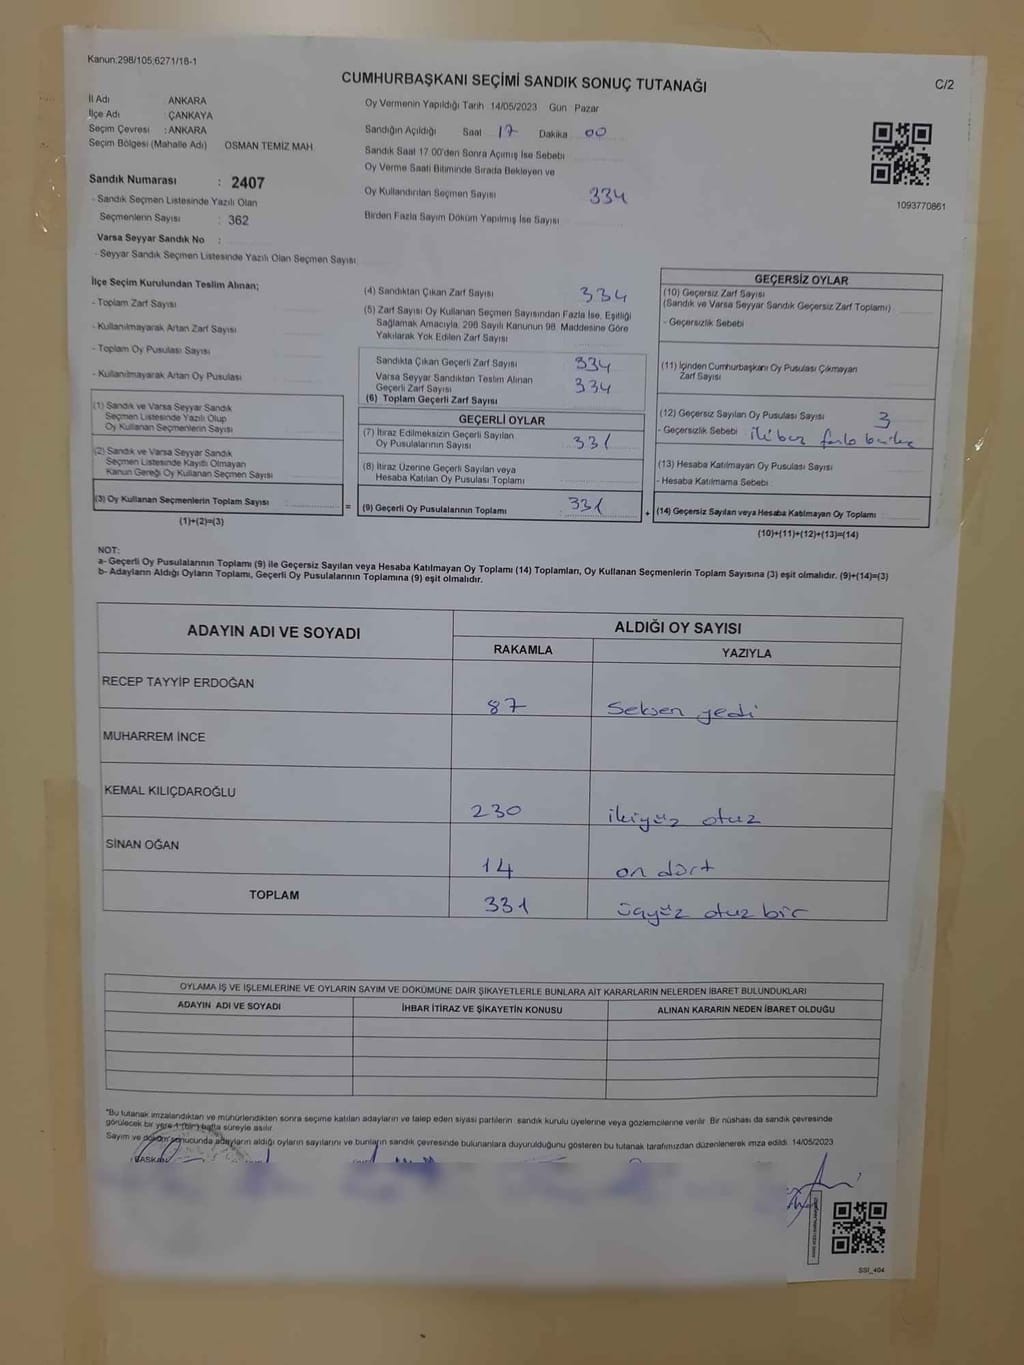 Kanun.298/105,6271/18-1
CUMHURBAŞKANI SEÇİMİ SANDIK SONUÇ TUTANAĞI
C/2
İl Adı ANKARA
İlçe Adı ÇANKAYA
Seçim Çevresi : ANKARA
Seçim Bölgesi (Mahalle Adı) OSMAN TEMİZ MAH.
Sandık Numarası : 2407
- Sandık Seçmen Listesinde Yazılı Olan
Seçmenlerin Sayısı : 362
Varsa Seyyar Sandık No :
- Seyyar Sandık Seçmen Listesinde Yazılı Olan Seçmen Sayısı
Oy Vermenin Yapıldığı Tarih 14/05/2023 Gün Pazar
Sandığın Açıldığı Saat 17 Dakika 00
Sandık Saat 17.00'den Sonra Açılmış İse Sebebi
Oy Verme Saati Bitiminde Sırada Bekleyen ve
Oy Kullandırılan Seçmen Sayısı 334
Birden Fazla Sayım Döküm Yapılmış İse Sayısı
1093770861
İlçe Seçim Kurulundan Teslim Alınan;
- Toplam Zarf Sayısı
- Kullanılmayarak Artan Zarf Sayısı
- Toplam Oy Pusulası Sayısı
- Kullanılmayarak Artan Oy Pusulası
(1) Sandık ve Varsa Seyyar Sandık
Seçmen Listesinde Yazılı Olup
Oy Kullanan Seçmenlerin Sayısı
(2) Sandık ve Varsa Seyyar Sandık
Seçmen Listesinde Kayıtlı Olmayan
Kanun Gereği Oy Kullanan Seçmen Sayısı
(3) Oy Kullanan Seçmenlerin Toplam Sayısı =
(1)+(2)=(3)
(4) Sandıktan Çıkan Zarf Sayısı 334
(5) Zarf Sayısı Oy Kullanan Seçmen Sayısından Fazla İse, Eşitliği
Sağlamak Amacıyla, 298 Sayılı Kanunun 98. Maddesine Göre
Yakılarak Yok Edilen Zarf Sayısı
Sandıkta Çıkan Geçerli Zarf Sayısı 334
Varsa Seyyar Sandıktan Teslim Alınan
Geçerli Zarf Sayısı 334
(6) Toplam Geçerli Zarf Sayısı
GEÇERLİ OYLAR
(7) İtiraz Edilmeksizin Geçerli Sayılan
Oy Pusulalarının Sayısı 331
(8) İtiraz Üzerine Geçerli Sayılan veya
Hesaba Katılan Oy Pusulası Toplamı
(9) Geçerli Oy Pusulalarının Toplamı 331 +
GEÇERSİZ OYLAR
(10) Geçersiz Zarf Sayısı
(Sandık ve Varsa Seyyar Sandık Geçersiz Zarf Toplamı)
- Geçersizlik Sebebi
(11) İçinden Cumhurbaşkanı Oy Pusulası Çıkmayan
Zarf Sayısı
(12) Geçersiz Sayılan Oy Pusulası Sayısı 3
- Geçersizlik Sebebi
(13) Hesaba Katılmayan Oy Pusulası Sayısı
- Hesaba Katılmama Sebebi
(14) Geçersiz Sayılan veya Hesaba Katılmayan Oy Toplamı
(10)+(11)+(12)+(13)=(14)
NOT:
a- Geçerli Oy Pusulalarının Toplamı (9) ile Geçersiz Sayılan veya Hesaba Katılmayan Oy Toplamı (14) Toplamları, Oy Kullanan Seçmenlerin Toplam Sayısına (3) eşit olmalıdır. (9)+(14)=(3)
b- Adayların Aldığı Oyların Toplamı, Geçerli Oy Pusulalarının Toplamına (9) eşit olmalıdır.
ADAYIN ADI VE SOYADI
ALDIĞI OY SAYISI
RAKAMLA YAZIYLA
RECEP TAYYİP ERDOĞAN 87 seksen yedi
MUHARREM İNCE
KEMAL KILIÇDAROĞLU 230 ikiyüz otuz
SİNAN OĞAN 14 on dört
TOPLAM 331 üçyüz otuz bir
OYLAMA İŞ VE İŞLEMLERİNE VE OYLARIN SAYIM VE DÖKÜMÜNE DAİR ŞİKAYETLERLE BUNLARA AİT KARARLARIN NELERDEN İBARET BULUNDUKLARI
ADAYIN ADI VE SOYADI İHBAR İTİRAZ VE ŞİKAYETİN KONUSU ALINAN KARARIN NEDEN İBARET OLDUĞU
*Bu tutanak imzalandıktan ve mühürlendikten sonra seçime katılan adayların ve talep eden siyasi partilerin sandık kurulu üyelerine veya gözlemcilerine verilir. Bir nüshası da sandık çevresinde
görülecek bir yere 1 (bir) hafta süreyle asılır.
Sayım ve döküm sonucunda adayların aldığı oyların sayılarını ve bunların sandık çevresinde bulunanlara duyurulduğunu gösteren bu tutanak tarafımızdan düzenlenerek imza edildi. 14/05/2023
BAŞKAN
SSI_404